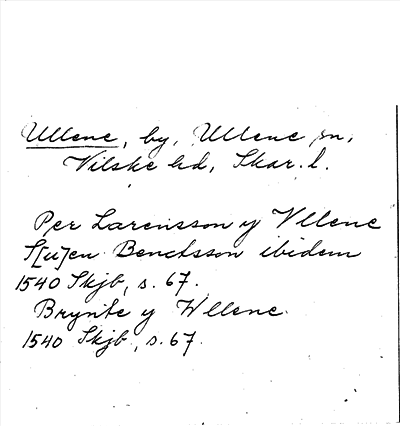 Ullene, by, Ullene sn,
Vilske hd, Skar. l.
Per Larensson y Vllene
S[u]en Benctsson ibidem
1540 Skjb, s. 67.
Brynte y Wllene
1540 Skjb, s. 67